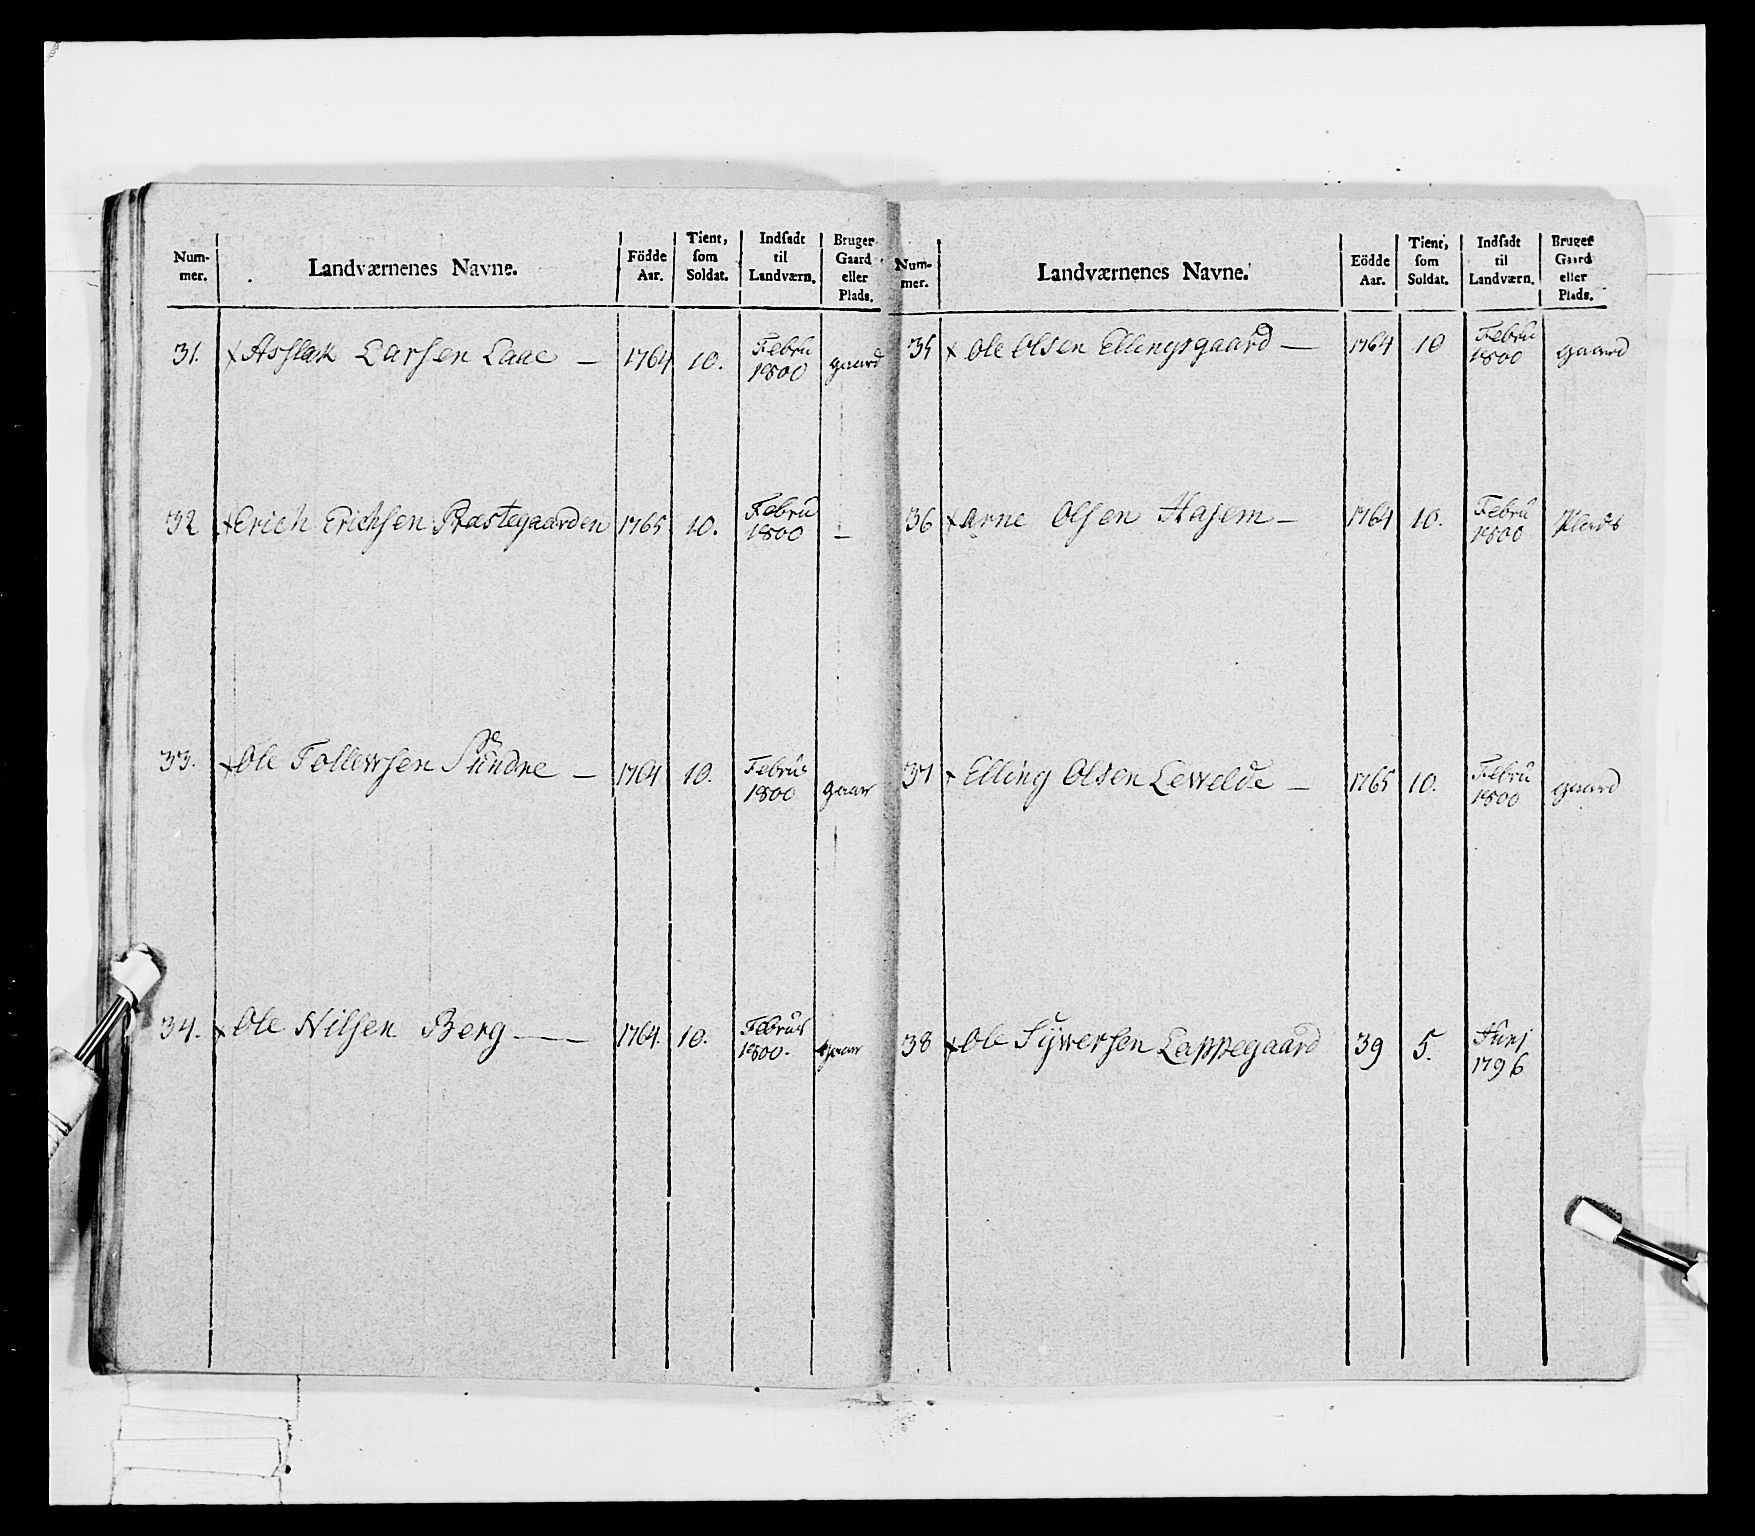 Num-
mer.
Landværnenes Navne.
Födde
Aar.
Tient,
som
Soldat.
Indsadt
til
Landværn.
Bruger
Gaard
eller
Plads.
31. x Asslak Larsen Laae — 1764 10. Febru
1800 gaard
32 x Erich Erichsen Præstegaarden 1765 10. Febru
1800 —
33. x Ole Tollewsen Sundre — 1764 10. Febru
1800 gaar
34. x Ole Nilsen Berg — 1764. 10. Febru
1800. gaar
Num-
mer.
Landværnenes Navne.
Födde
Aar.
Tient,
som
Soldat.
Indsadt
til
Landværn.
Bruger
Gaard
eller
Plads.
35 x Ole Olsen Ellingsgaard — 1764 10 Febru
1800 gaard
36 x Arne Olsen Hasem — 1764 10. Febru
1800 Plads
37 x Elling Olsen Lewelde — 1765 10. Febru
1800 gaard
38 x Ole Sÿwersen Lappegaard 39 5. Junj
1796